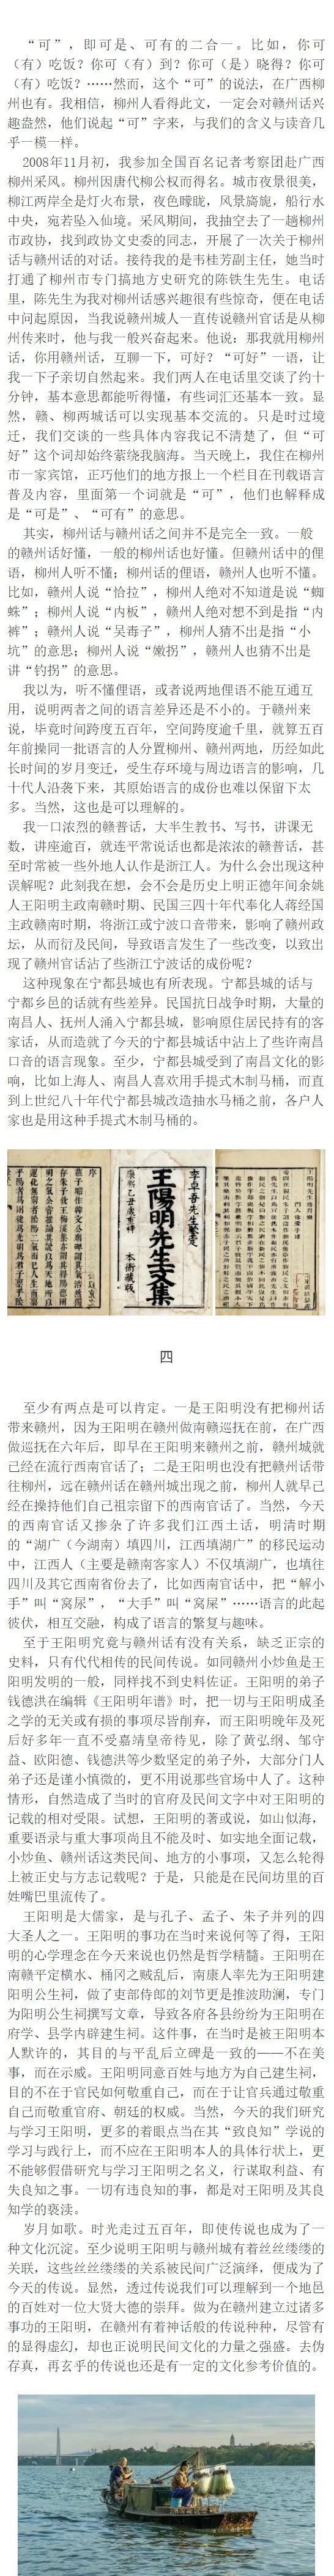 “可”，即可是、可有的二合一。比如，你可
（有）吃饭？你可（有）到？你可（是）晓得？你可
（有）吃饭？……然而，这个“可”的说法，在广西柳
州也有。我相信，柳州人看得此文，一定会对赣州话兴
趣盎然，他们说起“可”字来，与我们的含义与读音几
乎一模一样。
2008年11月初，我参加全国百名记者考察团赴广西
柳州采风。柳州因唐代柳公权而得名。城市夜景很美，
柳江两岸全是灯火布景，夜色矇眬，风景旖旎，船行水
中央，宛若坠入仙境。采风期间，我抽空去了一趟柳州
市政协，找到政协文史委的同志，开展了一次关于柳州
话与赣州话的对话。接待我的是韦桂芳副主任，她当时
打通了柳州市专门搞地方史研究的陈铁生先生。电话
里，陈先生为我对柳州话感兴趣很有些惊奇，便在电话
中问起原因，当我说赣州城人一直传说赣州官话是从柳
州传来时，他与我一般兴奋起来。他说：那我就用柳州
话，你用赣州话，互聊一下，可好？“可好”一语，让
我一下子亲切自然起来。我们两人在电话里交谈了约十
分钟，基本意思都能听得懂，有些词汇还基本一致。显
然，赣、柳两城话可以实现基本交流的。只是时过境
迁，我们交谈的一些具体内容我记不清楚了，但“可
好”这个词却始终萦绕我脑海。当天晚上，我住在柳州
市一家宾馆，正巧他们的地方报上一个栏目在刊载语言
普及内容，里面第一个词就是“可”，他们也解释成
是“可是”、“可有”的意思。
其实，柳州话与赣州话之间并不是完全一致。一般
的赣州话好懂，一般的柳州话也好懂。但赣州话中的俚
语，柳州人听不懂；柳州话的俚语，赣州人也听不懂。
比如，赣州人说“恰拉”，柳州人绝对不知道是说“蜘
蛛”；柳州人说“内板”，赣州人绝对想不到是指“内
裤”；赣州人说“吴毒子”，柳州人猜不出是指“小
坑”的意思；柳州人说“嫩拐”，赣州人也猜不出是
讲“钓拐”的意思。
我以为，听不懂俚语，或者说两地俚语不能互通互
用，说明两者之间的语言差异还是不小的。于赣州来
说，毕竟时间跨度五百年，空间跨度逾千里，就算五百
年前操同一批语言的人分置柳州、赣州两地，历经如此
长时间的岁月变迁，受生存环境与周边语言的影响，几
十代人沿袭下来，其原始语言的成份也难以保留下太
多。当然，这也是可以理解的。
我一口浓烈的赣普话，大半生教书、写书，讲课无
数，讲座逾百，就连平常说话也都是浓浓的赣普话，甚
至时常被一些外地人认作是浙江人。为什么会出现这种
误解呢？此刻我在想，会不会是历史上明正德年间余姚
人王阳明主政南赣时期、民国三四十年代奉化人蒋经国
主政赣南时期，将浙江或宁波口音带来，影响了赣州政
坛，从而衍及民间，导致语言发生了一些改变，以致出
现了赣州官话沾了些浙江宁波话的成份呢？
这种现象在宁都县城也有所表现。宁都县城的话与
宁都乡邑的话就有些差异。民国抗日战争时期，大量的
南昌人、抚州人涌入宁都县城，影响原住居民持有的客
家话，从而造就了今天的宁都县城话中沾上了些许南昌
口音的语言现象。至少，宁都县城受到了南昌文化的影
响，比如上海人、南昌人喜欢用手提式木制马桶，而直
到上世纪八十年代宁都县城改造抽水马桶之前，各户人
家也是用这种手提式木制马桶的。
李卓吾先生鉴定
王陽明先生文集
康熙乙丑歲重梓
本衙藏版
四
至少有两点是可以肯定。一是王阳明没有把柳州话
带来赣州，因为王阳明在赣州做南赣巡抚在前，在广西
做巡抚在六年后，即早在王阳明来赣州之前，赣州城就
已经在流行西南官话了；二是王阳明也没有把赣州话带
往柳州，远在赣州话在赣州城出现之前，柳州人就早已
经在操持他们自己祖宗留下的西南官话了。当然，今天
的西南官话又掺杂了许多我们江西土话，明清时期
的“湖广（今湖南）填四川，江西填湖广”的移民运动
中，江西人（主要是赣南客家人）不仅填湖广，也填往
四川及其它西南省份去了，比如西南官话中，把“解小
手”叫“窝尿”，“大手”叫“窝屎”……语言的此起
彼伏，相互交融，构成了语言的繁复与趣味。
至于王阳明究竟与赣州话有没有关系，缺乏正宗的
史料，只有代代相传的民间传说。如同赣州小炒鱼是王
阳明发明的一般，同样找不到史料佐证。王阳明的弟子
钱德洪在编辑《王阳明年谱》时，把一切与王阳明成圣
之学的无关或有损的事项尽皆削弃，而王阳明晚年及死
后好多年一直不受嘉靖皇帝待见，除了黄弘纲、邹守
益、欧阳德、钱德洪等少数坚定的弟子外，大部分门人
弟子还是谨小慎微的，更不用说那些官场中人了。这种
情形，自然造成了当时的官府及民间文字中对王阳明的
记载的相对受限。试想，王阳明的著或说，如山似海，
重要语录与重大事项尚且不能及时、如实地全面记载，
小炒鱼、赣州话这类民间、地方的小事项，又怎么轮得
上被正史与方志记载呢？于是，只能是在民间坊里的百
姓嘴巴里流传了。
王阳明是大儒家，是与孔子、孟子、朱子并列的四
大圣人之一。王阳明的事功在当时来说何等了得，王阳
明的心学理念在今天来说也仍然是哲学精髓。王阳明在
南赣平定横水、桶冈之贼乱后，南康人率先为王阳明建
阳明公生祠，做了吏部侍郎的刘节更是推波助澜，专门
为阳明公生祠撰写文章，导致各府各县纷纷为王阳明在
府学、县学内辟建生祠。这件事，在当时是被王阳明本
人默许的，其目的与平乱后立碑是一致的——不在美
事，而在示威。王阳明同意百姓与地方为自己建生祠，
目的不在于官民如何敬重自己，而在于让官兵通过敬重
自己而敬重官府、朝廷的权威。当然，今天的我们研究
与学习王阳明，更多的着眼点当在其“致良知”学说的
学习与践行上，而不应在王阳明本人的具体行状上，更
不能够假借研究与学习王阳明之名义，行谋取利益、有
失良知之事。一切有违良知的事，都是对王阳明及其良
知学的亵渎。
岁月如歌。时光走过五百年，即使传说也成为了一
种文化沉淀。至少说明王阳明与赣州城有着丝丝缕缕的
关联，这些丝丝缕缕的关系被民间广泛演绎，便成为了
今天的传说。显然，透过传说我们可以理解到一个地邑
的百姓对一位大贤大德的崇拜。做为在赣州建立过诸多
事功的王阳明，在赣州有着神话般的传说种种，尽管有
的显得虚幻，却也正说明民间文化的力量之强盛。去伪
存真，再玄乎的传说也还是有一定的文化参考价值的。